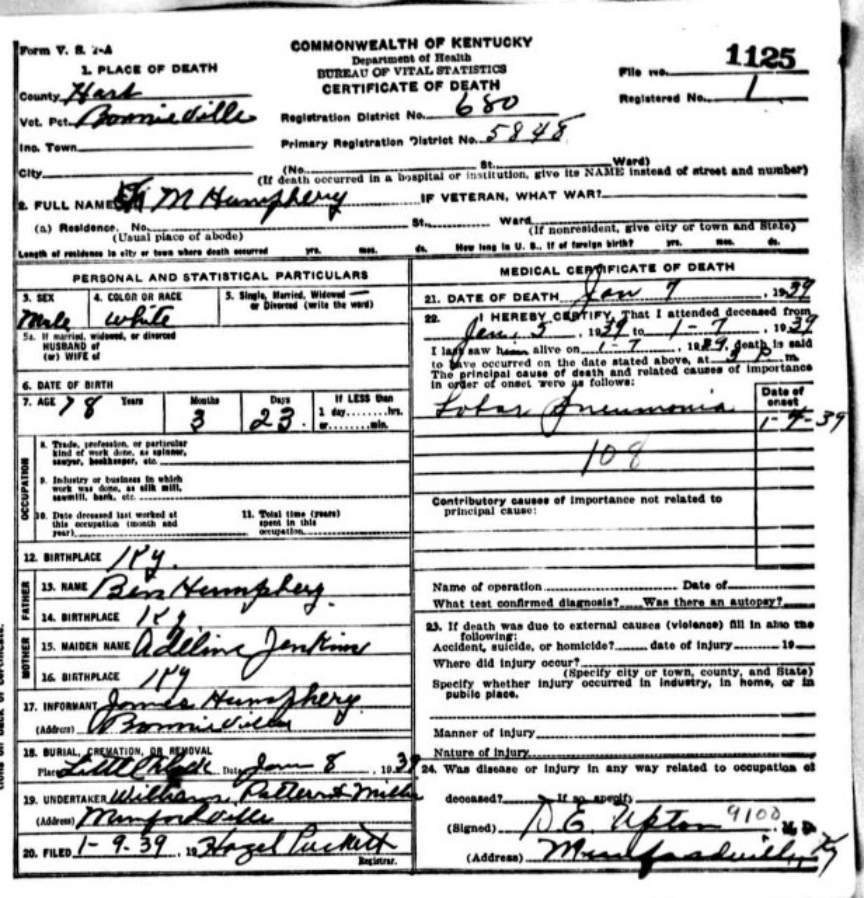 Form V. S. 1-A
COMMONWEALTH OF KENTUCKY
Department of Health
BUREAU OF VITAL STATISTICS
CERTIFICATE OF DEATH
1125
File No.
Registered No. 1
1. PLACE OF DEATH
County Hart
Vot. Pct. Bonnieville
Inc. Town
City
Registration District No. 680
Primary Registration District No. 5848
(No. St. Ward)
(If death occurred in a hospital or institution, give its NAME instead of street and number)
2. FULL NAME M Humphery IF VETERAN, WHAT WAR?
(a) Residence. No. St. Ward
(Usual place of abode) (If nonresident, give city or town and State)
Length of residence in city or town where death occurred yrs. mos. ds. How long in U. S., if of foreign birth? yrs. mos. ds.
PERSONAL AND STATISTICAL PARTICULARS
3. SEX 4. COLOR OR RACE 5. Single, Married, Widowed
or Divorced (write the word)
Male white
5a. If married, widowed, or divorced
HUSBAND of
(or) WIFE of
6. DATE OF BIRTH
7. AGE 78 Years Months 3 Days 23 If LESS than
1 day........hrs.
or........min.
OCCUPATION
8. Trade, profession, or particular
kind of work done, as spinner,
sawyer, bookkeeper, etc.
9. Industry or business in which
work was done, as silk mill,
sawmill, bank, etc.
10. Date deceased last worked at
this occupation (month and
year)
11. Total time (years)
spent in this
occupation
12. BIRTHPLACE Ky.
FATHER
13. NAME Ben Humphery
14. BIRTHPLACE Ky
MOTHER
15. MAIDEN NAME Adeline Jenkins
16. BIRTHPLACE Ky
17. INFORMANT James Humphery
(Address) Bonnieville
18. BURIAL, CREMATION, OR REMOVAL
Place Date Jan 8, 1939
19. UNDERTAKER Williams
(Address) Munfordville
20. FILED 1-9-39, 19 Hazel Puckett
Registrar.
MEDICAL CERTIFICATE OF DEATH
21. DATE OF DEATH Jan 7, 1939
22. I HEREBY CERTIFY, That I attended deceased from
Jan. 5, 1939 to 1-7, 1939
I last saw him alive on 1-7, 1939, death is said
to have occurred on the date stated above, at 3 P m.
The principal cause of death and related causes of importance
in order of onset were as follows:
Date of
onset
Lobar Pneumonia
108
Contributory causes of importance not related to
principal cause:
Name of operation Date of
What test confirmed diagnosis? Was there an autopsy?
23. If death was due to external causes (violence) fill in also the
following:
Accident, suicide, or homicide? date of injury 19
Where did injury occur?
(Specify city or town, county, and State)
Specify whether injury occurred in industry, in home, or in
public place.
Manner of injury
Nature of injury
24. Was disease or injury in any way related to occupation of
deceased? If so, specify
(Signed) D. E. Upton 9100 M. D.
(Address) Munfordville, Ky